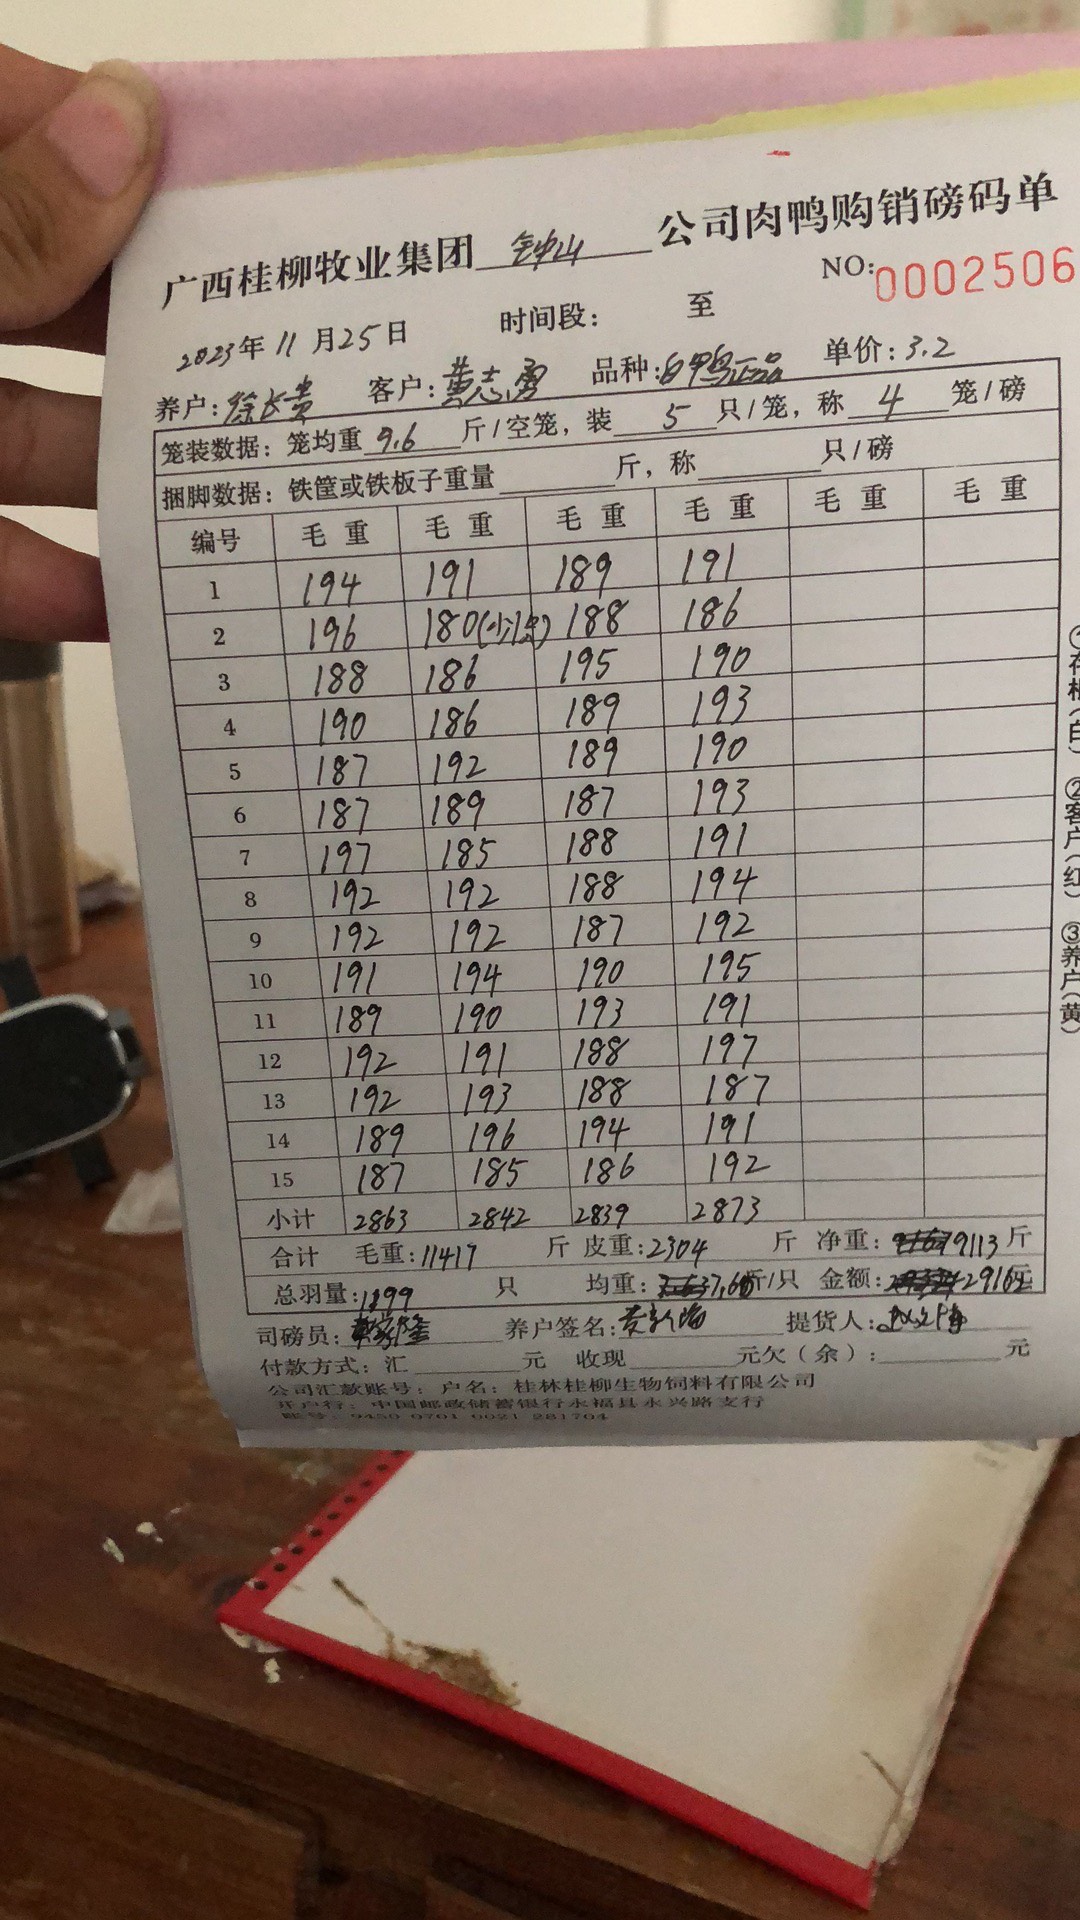 广西桂柳牧业集团 钟山 公司肉鸭购销磅码单
NO:0002506
2023年 11 月25日 时间段： 至
养户:徐长贵 客户:黄志勇 品种:白鸭正品 单价:3.2
笼装数据：笼均重 9.6 斤/空笼，装 5 只/笼，称 4 笼/磅
捆脚数据：铁筐或铁板子重量 斤，称 只/磅
编号 毛 重 毛 重 毛 重 毛 重 毛 重 毛 重
1 194 191 189 191
2 196 180(少1只) 188 186
3 188 186 195 190
4 190 186 189 193
5 187 192 189 190
6 187 189 187 193
7 197 185 188 191
8 192 192 188 194
9 192 192 187 192
10 191 194 190 195
11 189 190 193 191
12 192 191 188 197
13 192 193 188 187
14 189 196 194 191
15 187 185 186 192
小计 2863 2842 2839 2873
合计 毛重:11417 斤 皮重:2304 斤 净重: 9113 斤
总羽量:1199 只 均重: 7.60斤/只 金额: 29162元
司磅员: 养户签名: 提货人:
付款方式：汇 元 收现 元欠（余）: 元
公司汇款账号：户名：桂林桂柳生物饲料有限公司
开户行：中国邮政储蓄银行永福县永兴路支行
账号：9450 0701 0021 281704
①存根(白) ②客户(红) ③养户(黄)